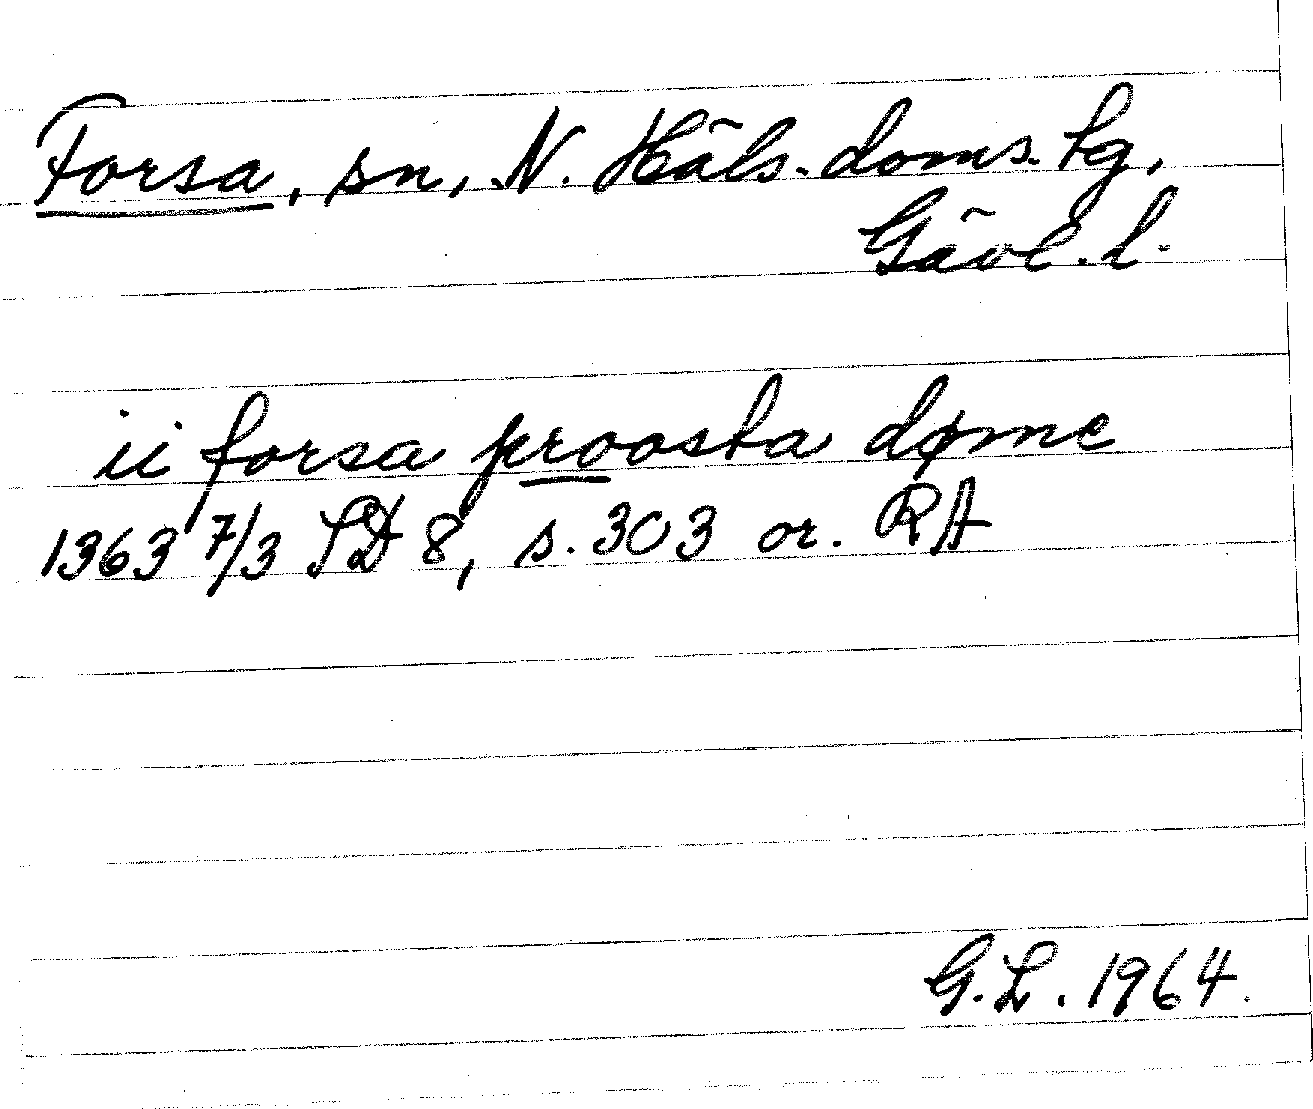 Forsa, sn, N. Häls. doms. tg,
Gävl. l.
ii forsa proosta dømc
1363 7/3 SD 8, s. 303 or. RA
G. L. 1964.